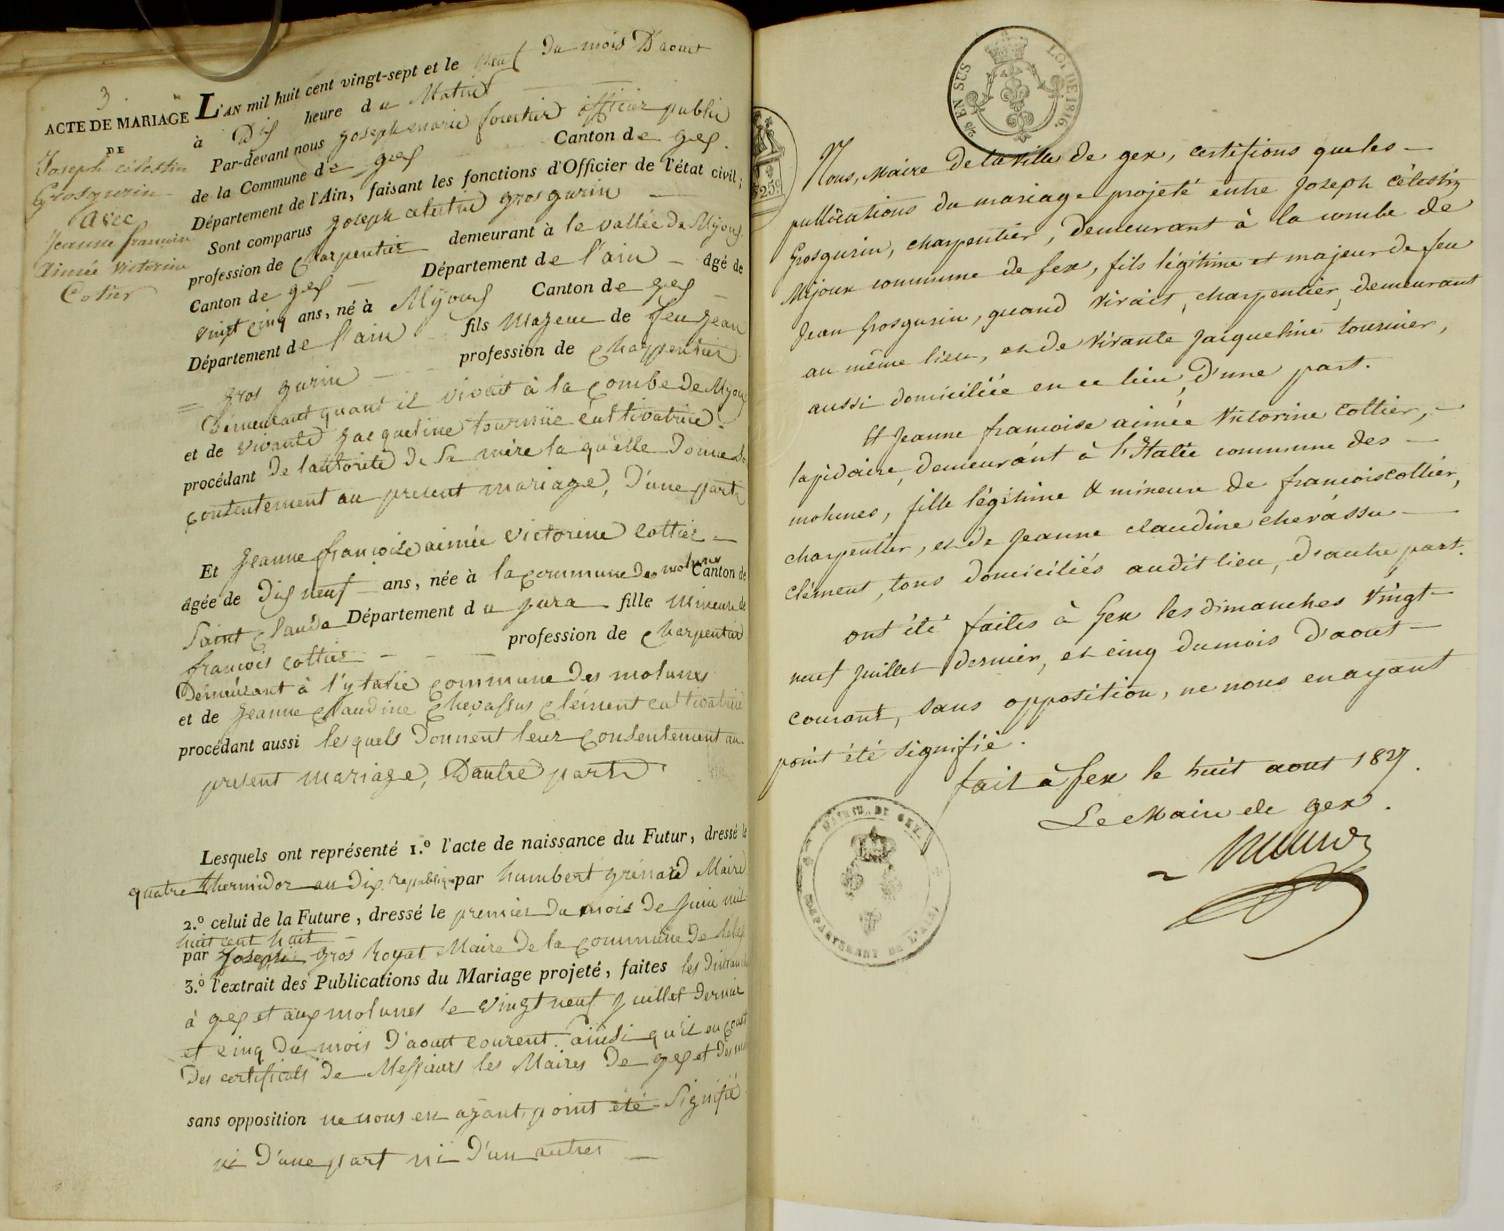 3
ACTE DE MARIAGE
DE
Joseph célestin
Grosgurin
avec
Jeanne francoise
aimée victorine
Cotier
L'AN mil huit cent vingt-sept et le neuf du mois D'aout
à Dix heure du Matin
Par-devant nous Joseph marie fournier officier public
de la Commune de gex Canton de gex.
Département de l'Ain, faisant les fonctions d'Officier de l'état civil,
Sont comparus Joseph celestin grosgurin
profession de charpentier demeurant à le vallée de Mijoux
Canton de gex Département de l'ain âgé de
vingt cinq ans, né à Mijoux Canton de gex
Département de l'ain fils Majeur de feu jean
gros gurin profession de charpentier
Demeurant quant il vivait à la Combe de Mijoux
et de vivante jacqueline tournier cultivatrice
procédant de l'autorité de sa mère la quelle Donne
consentement au present mariage, D'une part
Et jeanne francoise aimée victorine cottier
âgée de dix neuf ans, née à la commune des molunes Canton de
Saint Claude Département du jura fille mineure de
francois cottier profession de charpentier
Demeurant à l'ytalie commune des molunes
et de jeanne claudine chevassus clément cultivatrice
procédant aussi lesquels Donnent leur consentement au
present mariage, D'autre part
Lesquels ont représenté 1.º l'acte de naissance du Futur, dressé le
quatre thermidor an dix republique par humbert grinard Maire
2.º celui de la Future, dressé le premier du mois de juin mil
huit cent huit
par Joseph gros Royat Maire de la commune de
3.º l'extrait des Publications du Mariage projeté, faites les
à gex et aux molunes le vingt neuf juillet dernier
et cinq du mois D'aout courent ainsi qu'il en
Des certificats de Messieurs les Maires De gex et
sans opposition ne nous en ayant point été Signifié
ni D'une part ni D'un autres
25 EN SUS
LOI DE 1816.
25c
Nous, Maire de la ville de gex, certifions que les
publications du mariage projeté entre Joseph célestin
Grosgurin, charpentier, demeurant à la combe de
Mijoux commune de Gex, fils légitime et majeur de feu
Jean Grosgurin, quand vivait, charpentier, demeurant
au même lieu, et de vivante jacqueline tournier,
aussi domiciliée en ce lieu, d'une part.
Et Jeanne francoise aimée Victorine Cottier,
lapidaire, demeurant à l'Italie commune des
molunes, fille légitime & mineure de francois cottier,
charpentier, et de Jeanne claudine chevassu
clément, tous domiciliés audit lieu, d'autre part.
ont été faites à Gex les dimanches vingt
neuf juillet dernier, et cinq du mois d'aout
courant, sans opposition, ne nous en ayant
point été signifié.
fait à Gex le huit aout 1827.
Le Maire de gex.
MAIRIE DE GEX.
DEPARTEMENT DE L'AIN